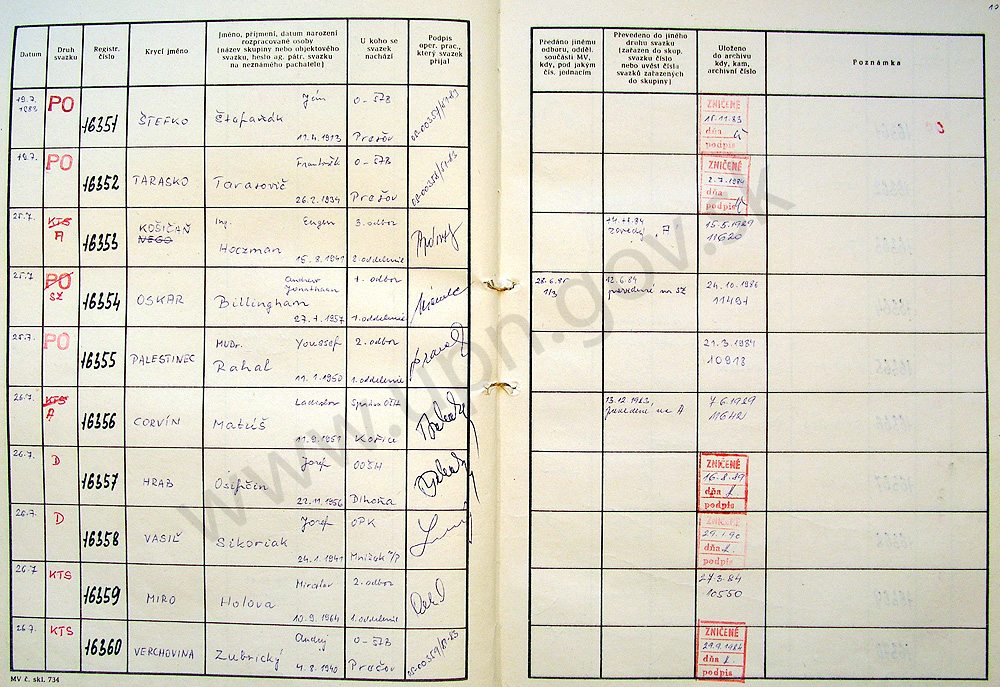 17
Datum
Druh
svazku
Registr.
číslo
Krycí jméno
Jméno, příjmení, datum narození
rozpracované osoby
(název skupiny nebo objektového
svazku, heslo ag. pátr. svazku
na neznámého pachatele)
U koho se
svazek
nachází
Podpis
oper. prac.,
který svazek
přijal
Předáno jinému
odboru, odděl.
součásti MV,
kdy, pod jakým
čís. jednacím
Převedeno do jiného
druhu svazku
(zařazen do skup.
svazku číslo
nebo uvést čísla
svazků zařazených
do skupiny)
Uloženo
do archivu
kdy, kam,
archivní číslo
Poznámka
19.7.
1983
PO
16351
ŠTEFKO
Ján
Štefaredk
11.4.1913
O-ŠTB
Prešov
ZNIČENÉ
15.11.83
dňa
podpis
19.7.
PO
16352
TARASKO
František
Tararovič
26.2.1934
O-ŠTB
Prešov
ZNIČENÉ
2.7.1984
dňa
podpis
25.7.
KTS
A
16353
KOŠIČAŇ
NEGO
Ing. Eugen
Hoczman
15.8.1941
3.odbor
2.oddelenie
zavedený A
15.5.1989
11620
25.7.
PO
SZ
16354
OSKAR
Andrew
Jonathan
Billingham
27.1.1957
1.odbor
1.oddelenie
28.6.85
113
12.6.84
prevedené na SZ
24.10.1986
11491
25.7.
PO
16355
PALESTINEC
MUDr. Youssef
Rahal
11.1.1950
2.odbor
1.oddelenie
21.3.1984
10918
26.7.
KTS
A
16356
CORVÍN
Ladislav
Matúš
11.9.1951
Správa OŠH
Košice
13.12.1983,
zavedení na A
7.6.1989
11642
26.7.
D
16357
HRAB
Jozef
Osifčin
22.11.1956
OOŠH
Dlhoňa
ZNIČENÉ
16.8.89
dňa
podpis
26.7.
D
16358
VASIĽ
Jozef
Sikoriak
24.1.1941
OPK
Mníšek n/P
ZNIČENÉ
29.1.90
dňa
podpis
26.7
KTS
16359
MIRO
Miroslav
Holova
10.9.1964
2.odbor
1.oddelenie
27.3.84
10550
26.7.
KTS
16360
VERCHOVINA
Andrej
Zubrický
4.8.1940
O-ŠTB
Prešov
ZNIČENÉ
29.9.1984
dňa
podpis
MV č. skl. 734
www.upn.gov.sk